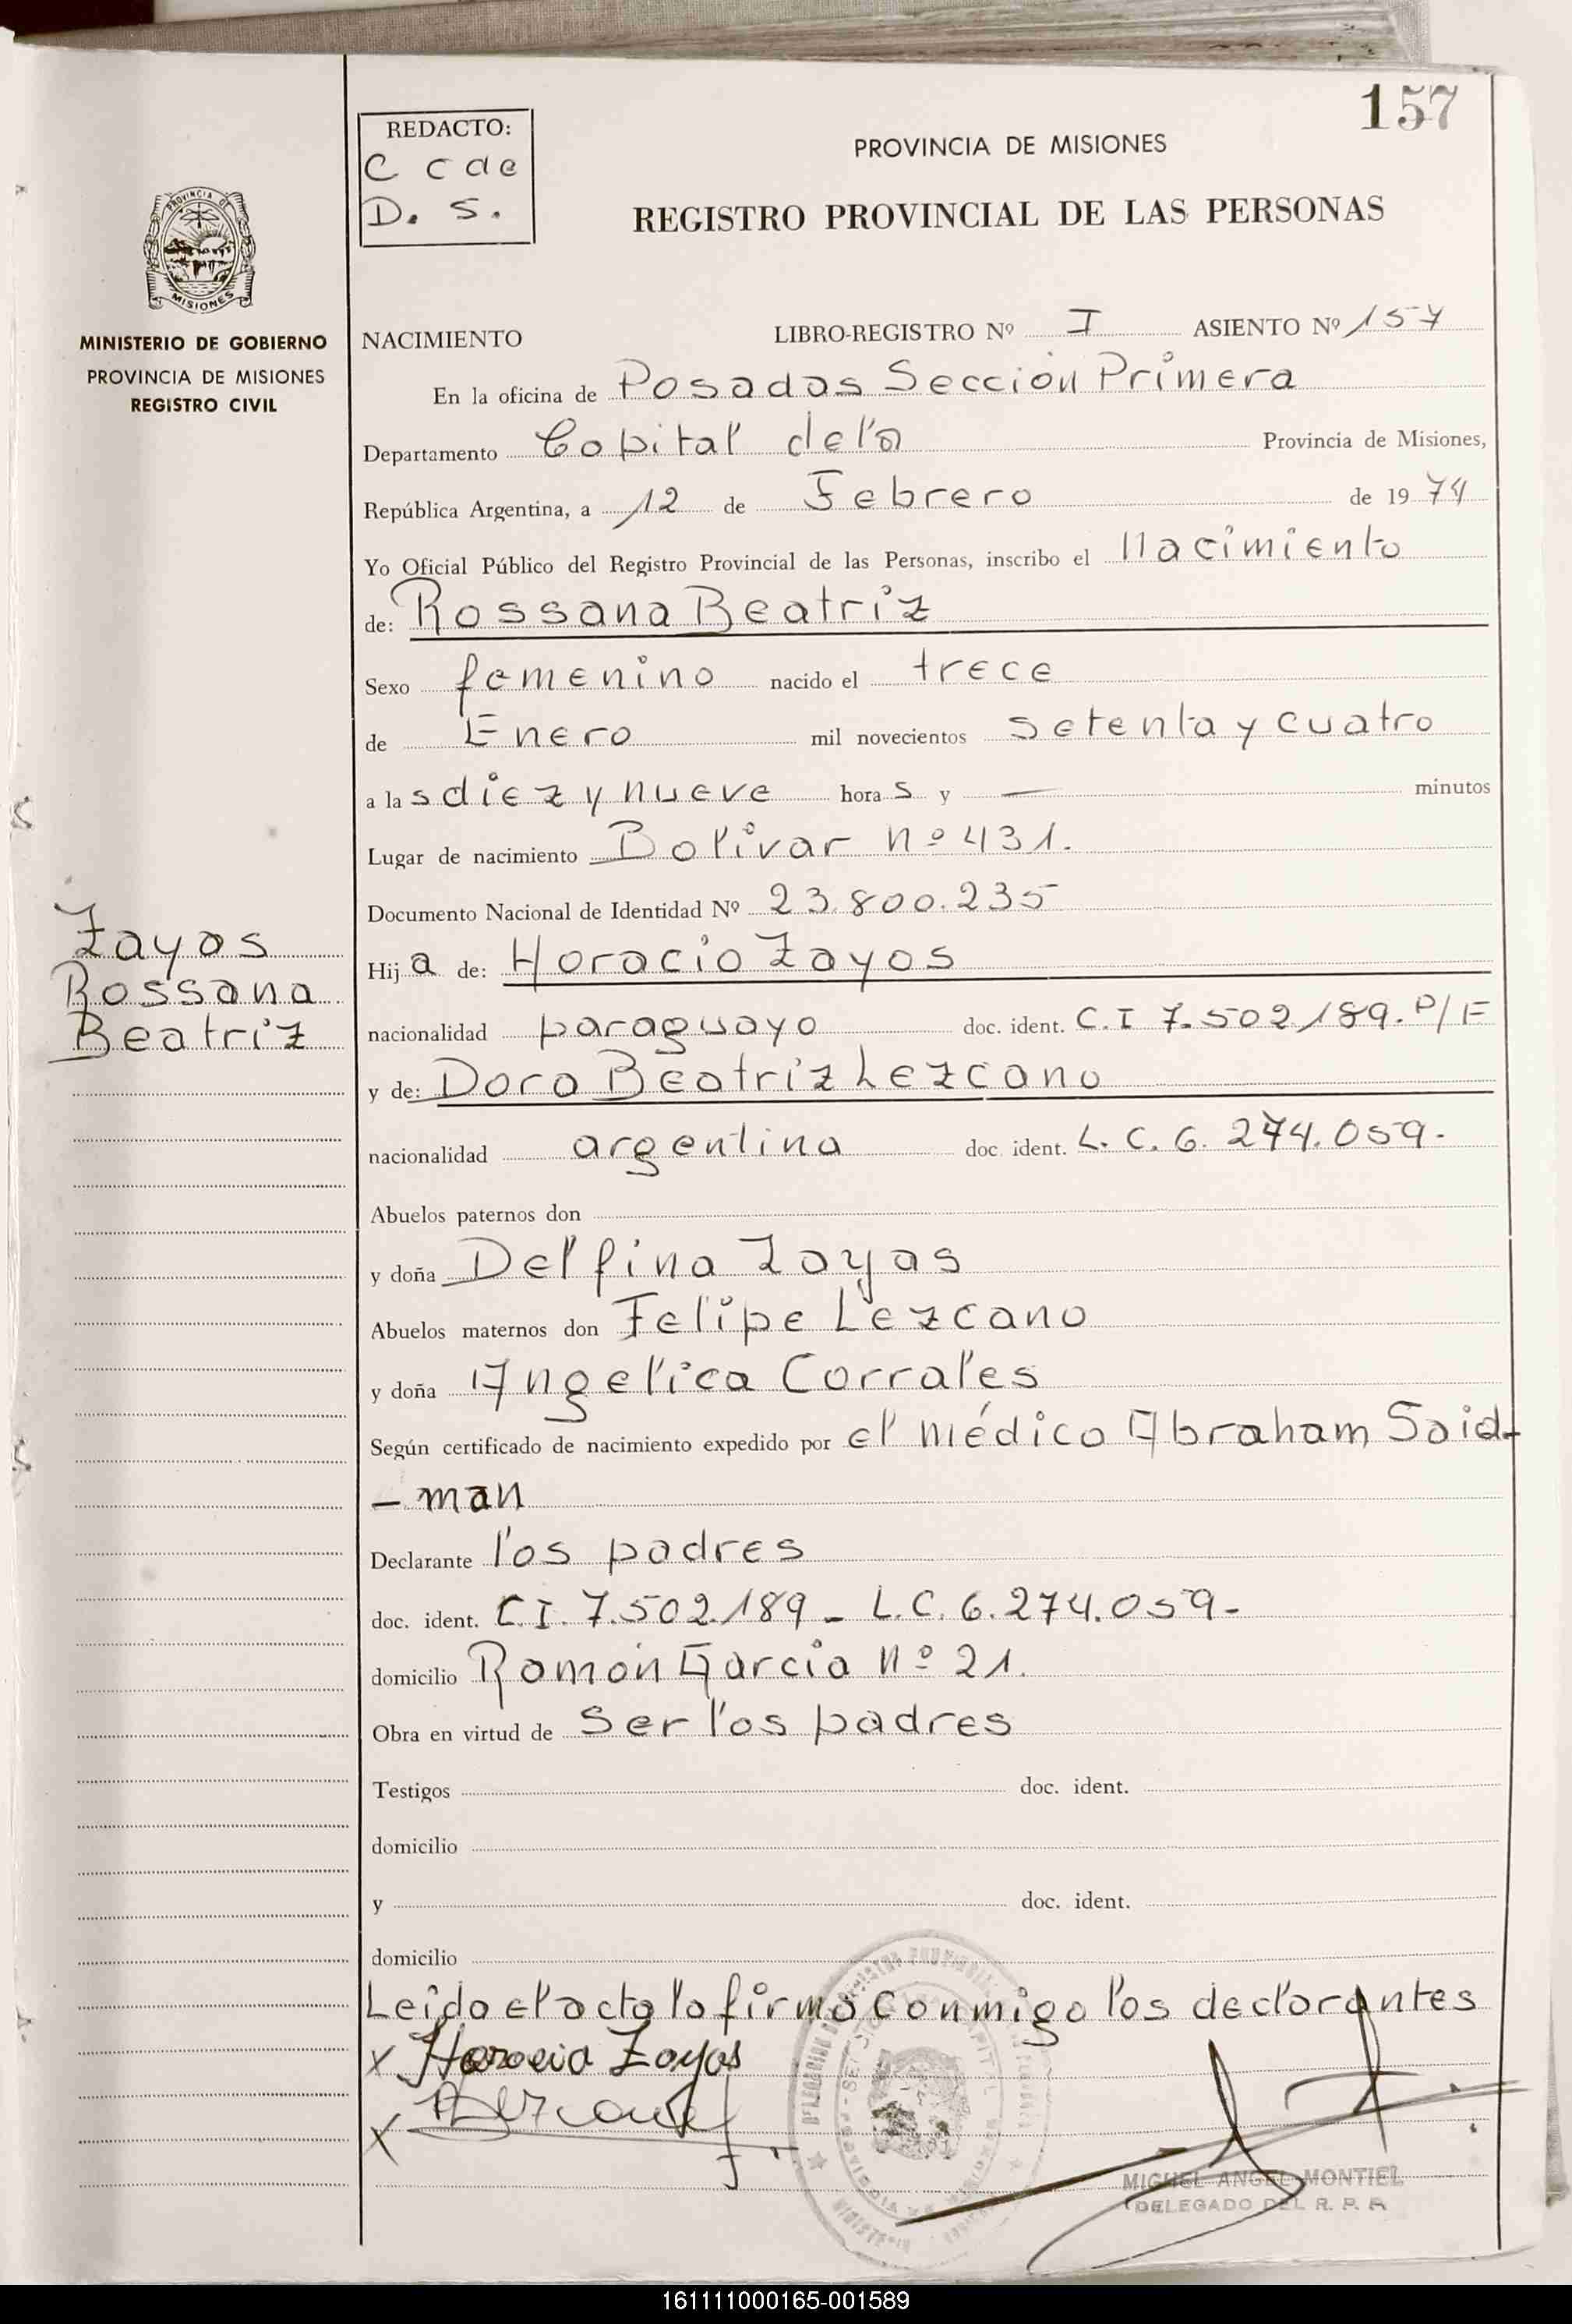 157
REDACTO:
C c de
D. S.
PROVINCIA DE MISIONES
REGISTRO PROVINCIAL DE LAS PERSONAS
PROVINCIA DE
MISIONES
MINISTERIO DE GOBIERNO
PROVINCIA DE MISIONES
REGISTRO CIVIL
NACIMIENTO LIBRO-REGISTRO Nº I ASIENTO Nº 157
En la oficina de Posadas Sección Primera
Departamento Capital de la Provincia de Misiones,
República Argentina, a 12 de Febrero de 1974
Yo Oficial Público del Registro Provincial de las Personas, inscribo el Nacimiento
de: Rossana Beatriz
Sexo femenino nacido el trece
de Enero mil novecientos setenta y cuatro
a las diez y nueve horas y — minutos
Lugar de nacimiento Bolivar nº 431.
Documento Nacional de Identidad Nº 23.800.235
Zayas
Rossana
Beatriz
Hija de: Horacio Zayas
nacionalidad paraguayo doc. ident. C.I 7.502189. P/F
y de: Dora Beatriz Lezcano
nacionalidad argentina doc. ident. L.C. 6.274.059.
Abuelos paternos don
y doña Delfina Zayas
Abuelos maternos don Felipe Lezcano
y doña Angelica Corrales
Según certificado de nacimiento expedido por el médico Abraham Said-
- man
Declarante los padres
doc. ident. C.I. 7.502.189 - L.C. 6.274.059-
domicilio Ramón Garcia nº 21.
Obra en virtud de ser los padres
Testigos doc. ident.
domicilio
y doc. ident.
domicilio
Leido el acta la firma conmigo los declarantes
x Horacio Zayas
x
MIGUEL ANGEL MONTIEL
DELEGADO DEL R. P. P.
161111000165-001589